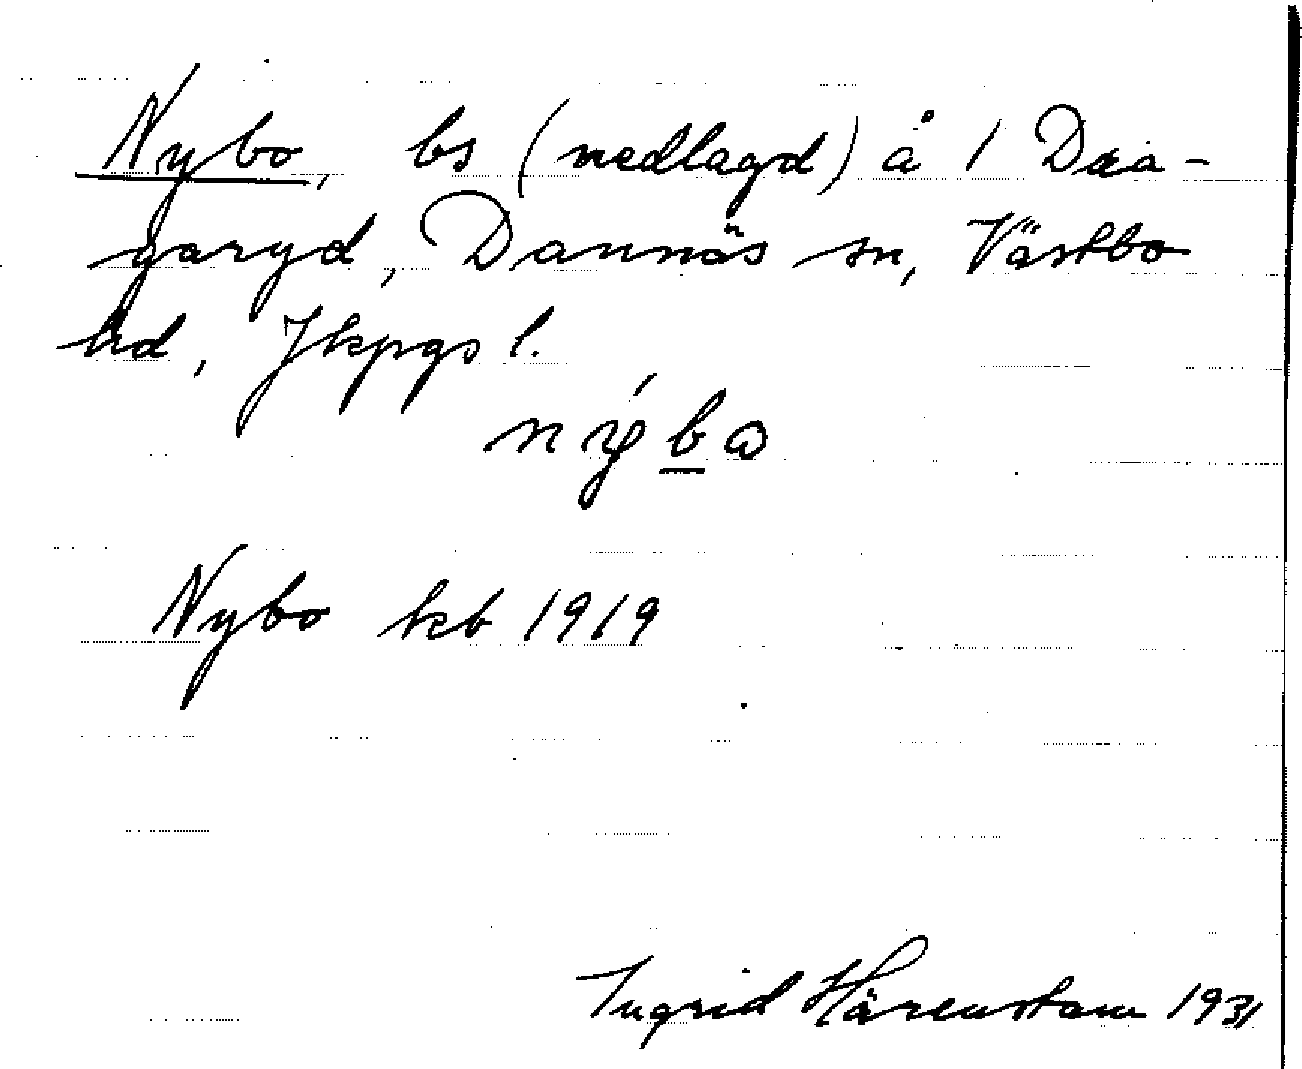 Nybo, bs (nedlagd) å 1 Dra-
garyd, Dannäs sn, Västbo
hd, Jkpgs l.
nýbω
Nybo kb 1919
Ingrid Härenstam 1931